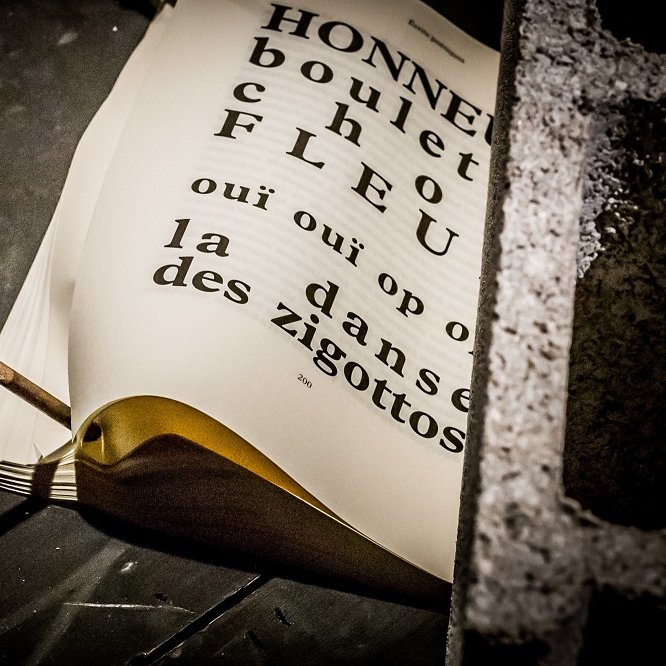 Écrits poétiques
HONNEU
boulet
c h o
FLEU
ouï ouï op o
la danse
des zigottos
200